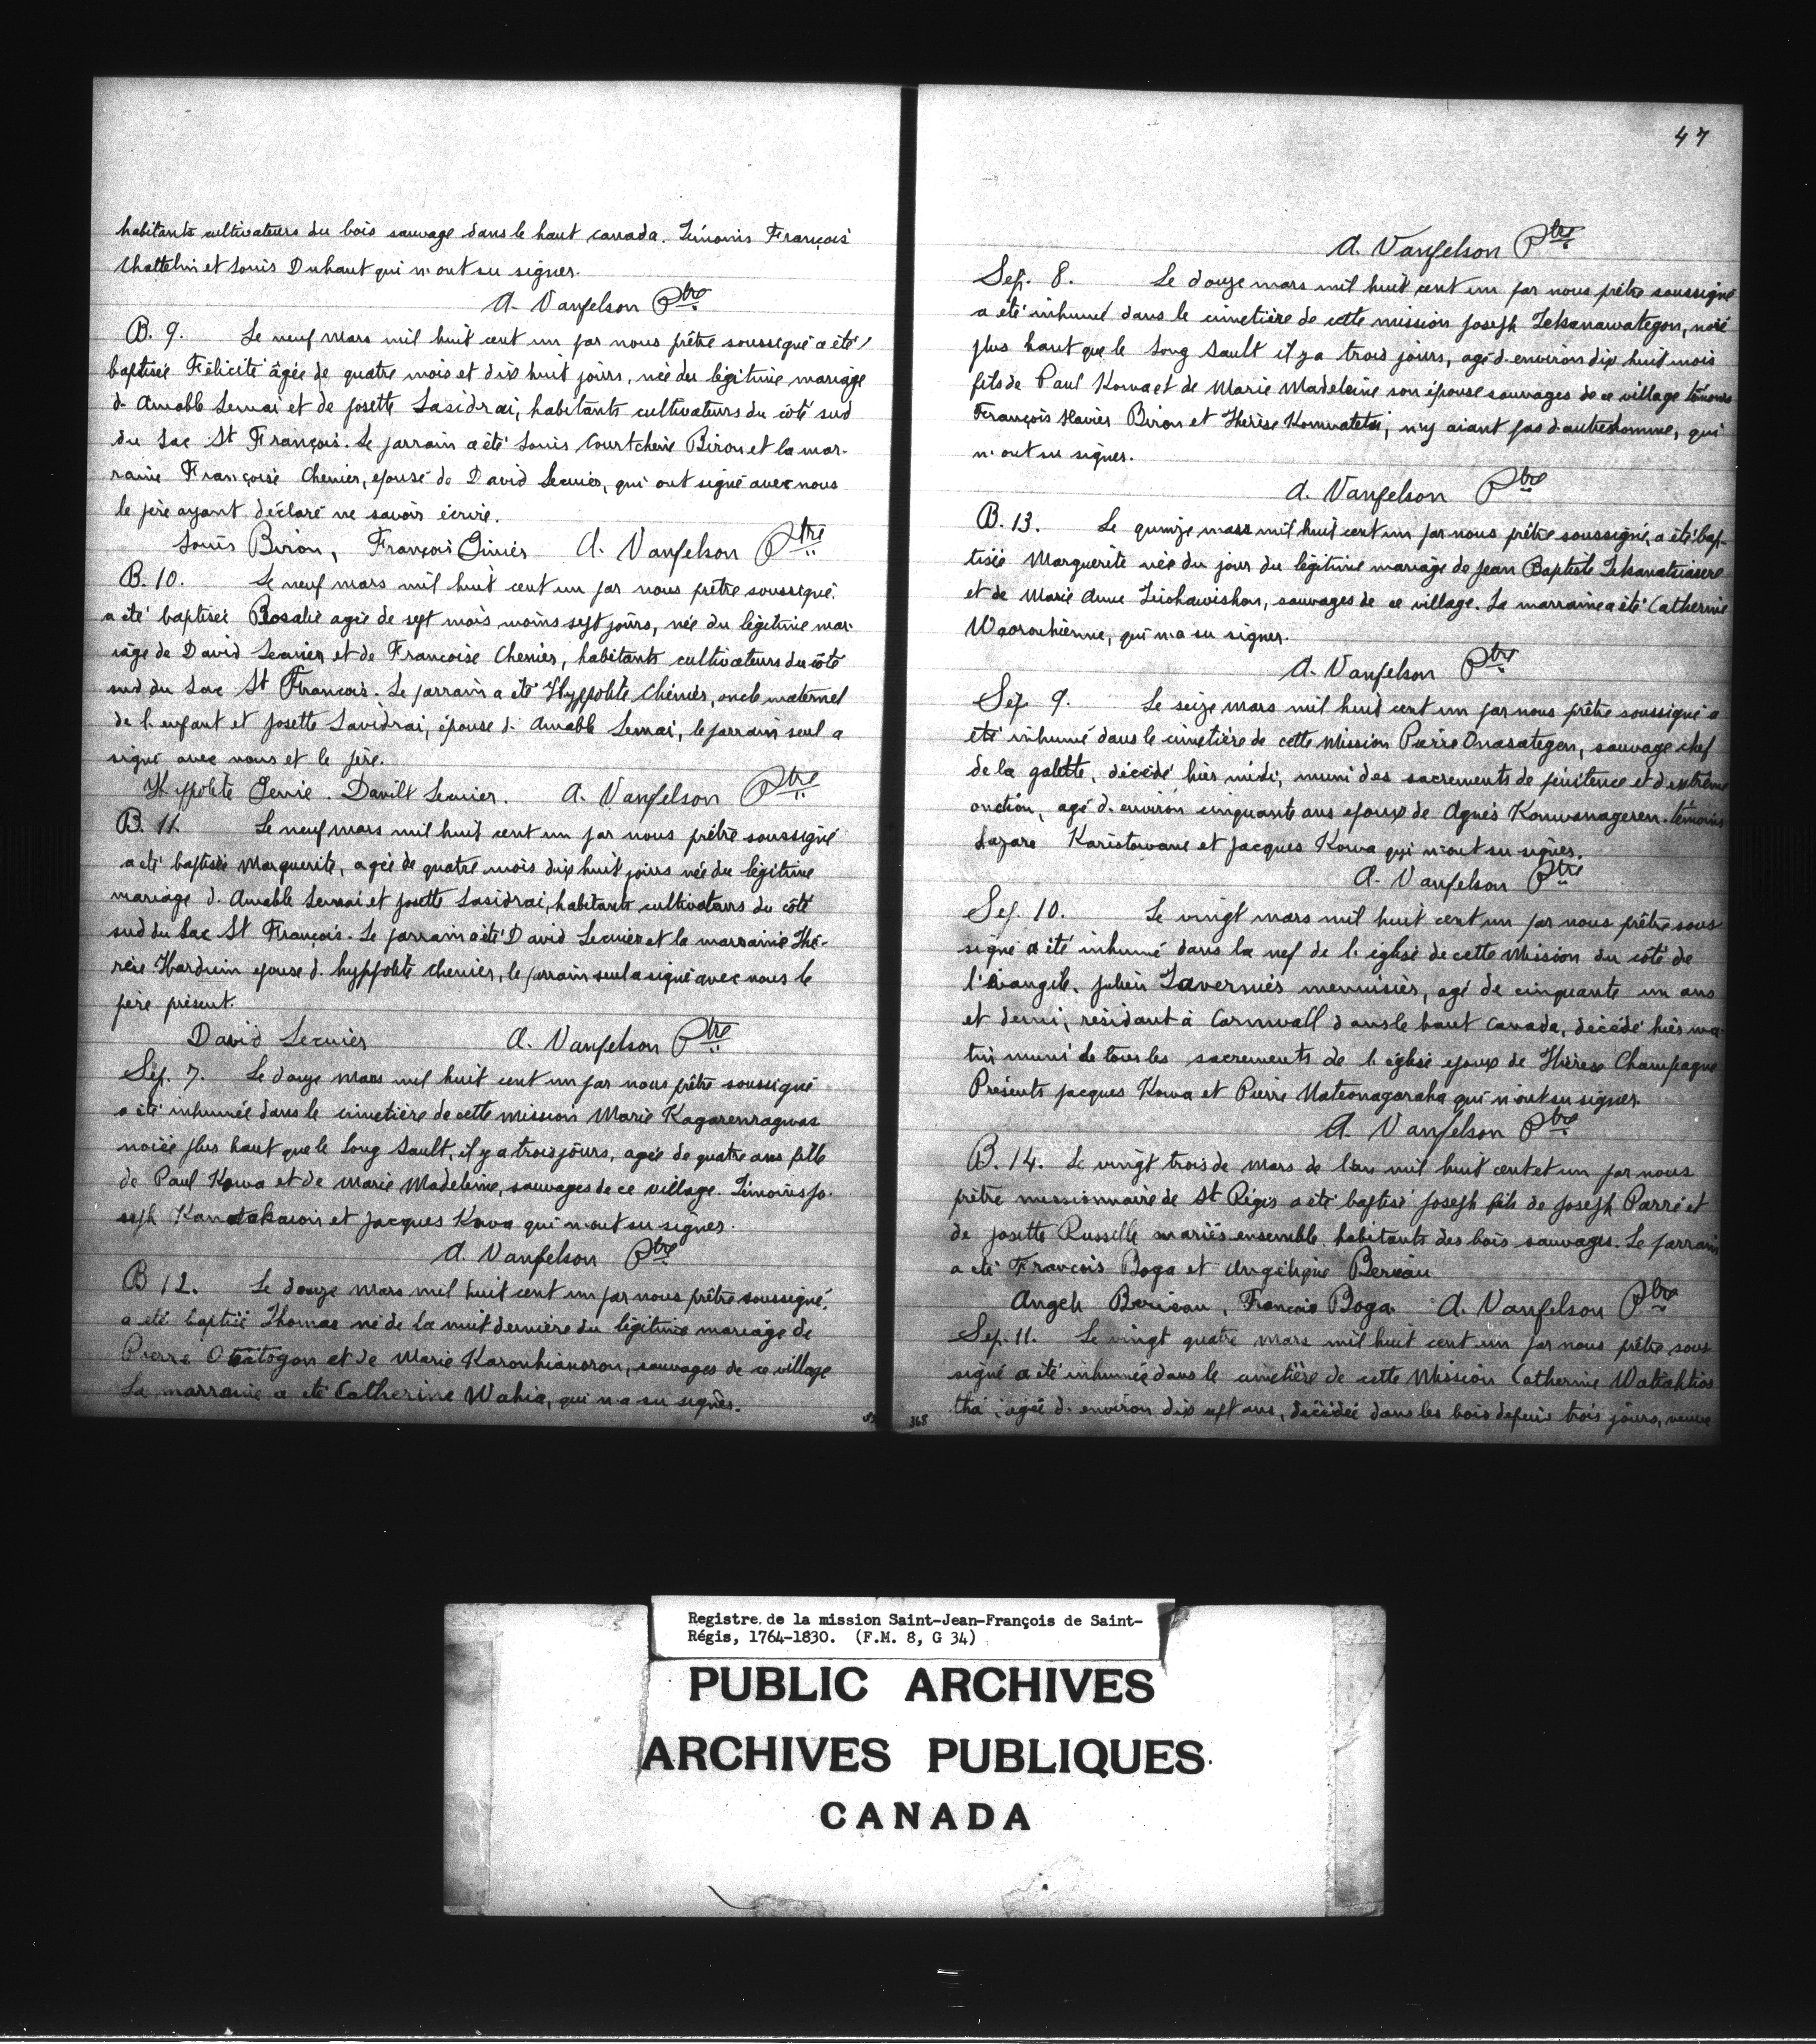 habitants cultivateurs du bois sauvage dans le haut canada. Témoins François
Chattelin et Louis Duhaut qui n'ont su signer.
A. Vanfelson Ptre
B. 9. Le neuf mars mil huit cent un par nous prêtre soussigné a été
baptisée Félicité âgée de quatre mois et dix huit jours, née du légitime mariage
d. Amable Lemai et de Josette Lasidrai, habitants cultivateurs du côté sud
du Lac St François. Le parrain a été Louis Courtchene Biron et la mar-
raine Françoise Chenier, epouse de David Lecuier, qui ont signé avec nous
le père ayant déclaré ne savoir écrire.
Louis Biron, François A. Vanfelson Ptre
B. 10. Le neuf mars mil huit cent un par nous prêtre soussigné
a été baptisée Rosalie agée de sept mois moins sept jours, née du légitime mar-
iage de David Lecuier et de Francoise Chenier, habitants cultivateurs du côté
sud du Lac St François. Le parrain a été Hyppolite Chénier, oncle maternel
de l'enfant et Josette Lavidrai, épouse d. Amable Lemai, le parrain seul a
signé avec nous et le père.
Hyppolite Genie. Davilt Lecuier. A. Vanfelson Ptre
B. 11. Le neuf mars mil huit cent un par nous prêtre soussigné
a été baptisée Marguerite, agée de quatre mois dix huit jours née du légitime
mariage d. Amable Lemai et Josette Lasidrai, habitants cultivateurs du côté
sud du Lac St François. Le parrain a été David Lecuier et la marraine Thé-
rèse Harduin epouse d. hyppolite Chenier, le parrain seul a signé avec nous le
père présent.
David Lecuier A. Vanfelson Ptre
Sép. 7. Le douze mars mil huit cent un par nous prêtre soussigné
a été inhumée dans le cimetière de cette mission Marie Kagarenragwas
noiée plus haut que le Long Sault, il y a trois jours, agée de quatre ans fille
de Paul Kowa et de Marie Madeleine, sauvages de ce village. Témoins Jo-
seph et Jacques Kowa qui n'ont su signer.
A. Vanfelson Ptre
B 12. Le douze mars mil huit cent un par nous prêtre soussigné
a été baptisé Thomas né de la nuit dernière du légitime mariage de
Pierre et de Marie Karonhianoron, sauvages de ce village
La marraine a été Catherine Wahia, qui n'a su signer.
47
A. Vanfelson Ptre
Sép. 8. Le douze mars mil huit cent un par nous prêtre soussigné
a été inhumé dans le cimetière de cette mission Joseph Tekanawategon, noié
plus haut que le Long Sault il y a trois jours, agé d. environ dix huit mois
fils de Paul Kowa et de Marie Madeleine son épouse sauvages de ce village témoins
François Xavier Biron et Thérèse Konwatetsi, n'y aiant pas d'autre homme, qui
n'ont su signer.
A. Vanfelson Ptre
B. 13. Le quinze mars mil huit cent un par nous prêtre soussigné, a été bap-
tisée Marguerite née du jour du légitime mariage de Jean Baptiste Tekanatsiasere
et de Marie Anne Teiohawishon, sauvages de ce village. La marraine a été Catherine
Waorouhienne, qui n'a su signer.
A. Vanfelson Ptre
Sép. 9. Le seize mars mil huit cent un par nous prêtre soussigné a
été inhumé dans le cimetière de cette Mission Pierre Onasategen, sauvage chef
de la galette, décédé hier midi, muni des sacrements de pénitence et d. extrême
onction, agé d. environ cinquante ans epoux de Agnès Konwanageren. témoins
Lazare Karistowane et Jacques Kowa qui n'ont su signer.
A. Vanfelson Ptre
Sép. 10. Le vingt mars mil huit cent un par nous prêtre sous
signé a été inhumé dans la nef de l. église de cette Mission du côté de
l'évangile, Julien Tavernier menuisier, agé de cinquante un ans
et demi, résidant à Cornwall dans le haut Canada, décédé hier ma-
tin muni de tous les sacrements de l. église epoux de Thérèse Champagne
Présents Jacques Kowa et Pierre Nateonagaraha qui n'ont su signer.
A. Vanfelson Ptre
B. 14. Le vingt trois de mars de l'an mil huit cent et un par nous
prêtre missionnaire de St Régis a été baptisé Joseph fils de Joseph Parré et
de Josette Russelle mariés ensemble habitants des bois sauvages. Le parrain
a été François Boga et Angélique Bereau
Angele Berieau, François Boga A. Vanfelson Ptre
Sép. 11. Le vingt quatre mars mil huit cent un par nous prêtre sous
signé a été inhumée dans le cimetière de cette Mission Catherine Watiahtios
tha, agée d. environ dix sept ans, décédée dans les bois depuis trois jours, veuve
365
Registre de la mission Saint-Jean-François de Saint-
Régis, 1764-1830. (F.M. 8, G 34)
PUBLIC ARCHIVES
ARCHIVES PUBLIQUES
CANADA